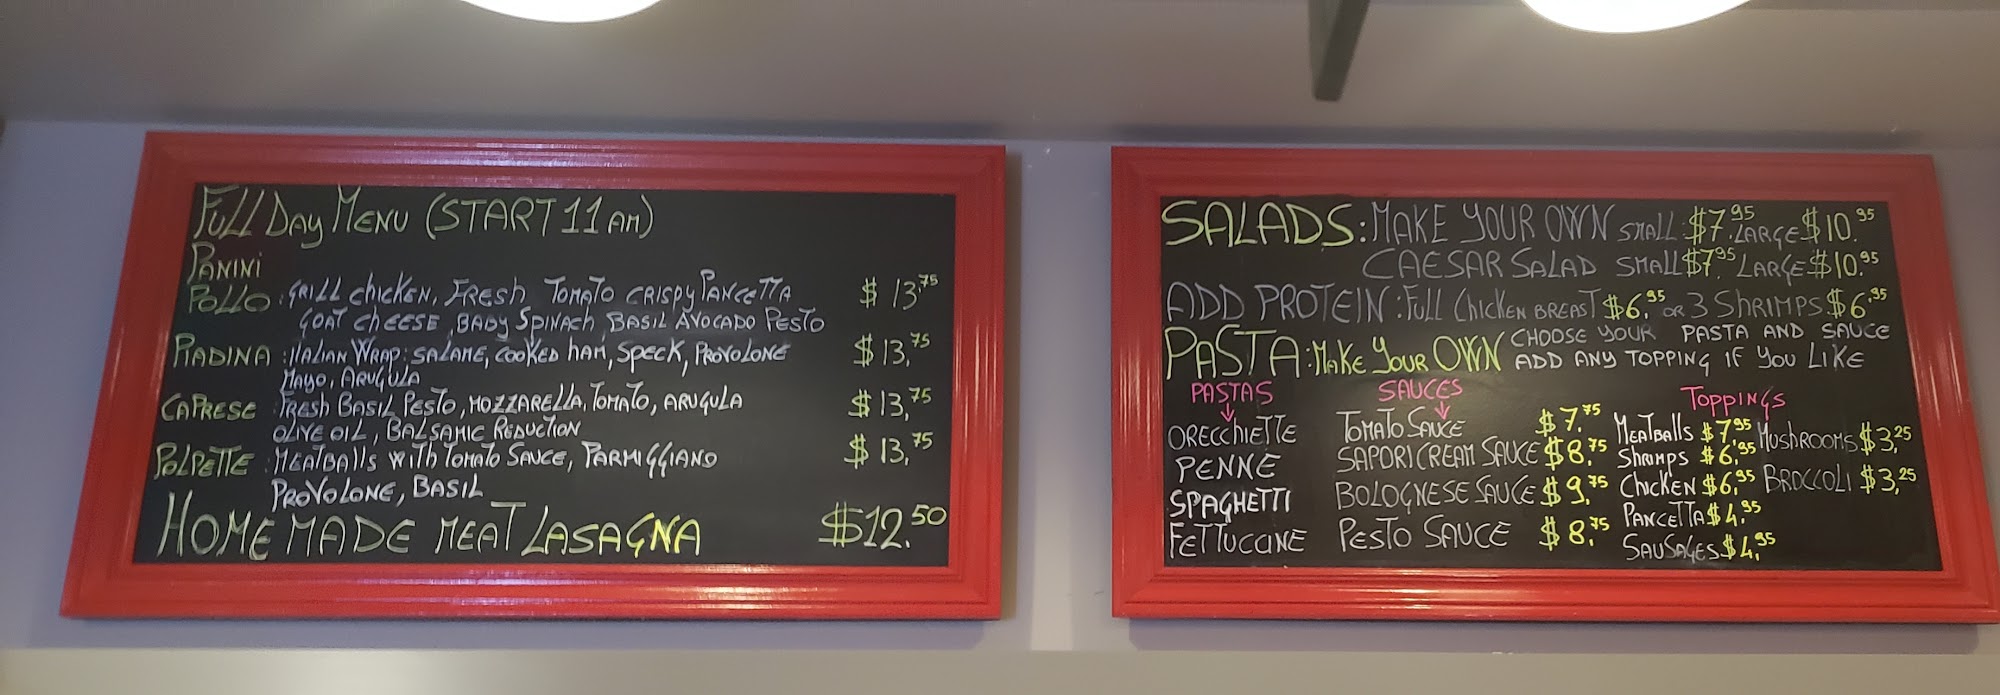 FULL DAY MENU (START 11 AM)
PANINI
POLLO : GRILL CHICKEN, FRESH TOMATO CRISPY PANCETTA $ 13.75
GOAT CHEESE, BABY SPINACH, BASIL AVOCADO PESTO
PIADINA : ITALIAN WRAP: SALAME, COOKED HAM, SPECK, PROVOLONE $ 13,75
MAYO, ARUGULA
CAPRESE : FRESH BASIL PESTO, MOZZARELLA, TOMATO, ARUGULA $ 13,75
OLIVE OIL, BALSAMIC REDUCTION
POLPETTE : MEATBALLS WITH TOMATO SAUCE, PARMIGGIANO $ 13,75
PROVOLONE, BASIL
HOME MADE MEAT LASAGNA $12.50
SALADS: MAKE YOUR OWN SMALL: $7.95 LARGE $10.95
CAESAR SALAD SMALL $7.95 LARGE $10.95
ADD PROTEIN: FULL CHICKEN BREAST $6.95 OR 3 SHRIMPS $6.95
PASTA: MAKE YOUR OWN CHOOSE YOUR PASTA AND SAUCE
ADD ANY TOPPING IF YOU LIKE
PASTAS
ORECCHIETTE
PENNE
SPAGHETTI
FETTUCCINE
SAUCES
TOMATO SAUCE $7.75
SAPORI CREAM SAUCE $8.75
BOLOGNESE SAUCE $9.75
PESTO SAUCE $8.75
TOPPINGS
MEATBALLS $7.95 MUSHROOMS $3,25
SHRIMPS $6.95
CHICKEN $6.95 BROCCOLI $3,25
PANCETTA $4.95
SAUSAGES $4.95